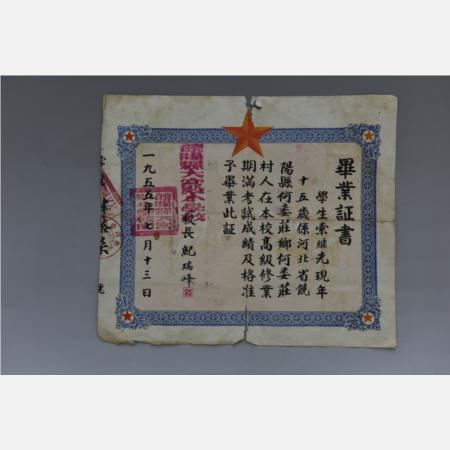 畢業証書
學生索繼先現年
十五歲係河北省饒
陽縣何委莊鄉何委莊
村人在本校高級修業
期滿考試成績及格准
予畢業此証
校長 紀瑞峰
一九五五年七月十三日